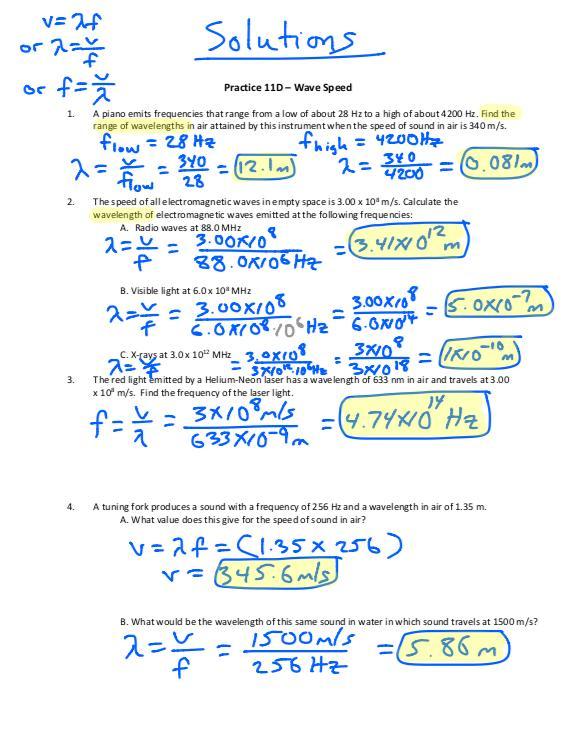 v=λf
or λ=v/f
or f=v/λ
Solutions
Practice 11D – Wave Speed
1. A piano emits frequencies that range from a low of about 28 Hz to a high of about 4200 Hz. Find the
range of wavelengths in air attained by this instrument when the speed of sound in air is 340 m/s.
f low = 28 Hz f high = 4200Hz
λ = v/f low = 340/28 = 12.1m λ = 340/4200 = 0.081m
2. The speed of all electromagnetic waves in empty space is 3.00 x 10⁸ m/s. Calculate the
wavelength of electromagnetic waves emitted at the following frequencies:
A. Radio waves at 88.0 MHz
λ = v/f = 3.00X10⁸/88.0X10⁶Hz = 3.41X10¹² m
B. Visible light at 6.0 x 10⁸ MHz
λ = v/f = 3.00X10⁸/6.0X10⁸·10⁶Hz = 3.00X10⁸/6.0X10¹⁴ = 5.0X10⁻⁷m
C. X-rays at 3.0 x 10¹² MHz
λ = v/f = 3.0X10⁸/3X10¹²·10⁶Hz = 3X10⁸/3X10¹⁸ = 1X10⁻¹⁰ m
3. The red light emitted by a Helium-Neon laser has a wavelength of 633 nm in air and travels at 3.00
x 10⁸ m/s. Find the frequency of the laser light.
f = v/λ = 3X10⁸m/s/633X10⁻⁹m = 4.74X10¹⁴ Hz
4. A tuning fork produces a sound with a frequency of 256 Hz and a wavelength in air of 1.35 m.
A. What value does this give for the speed of sound in air?
v = λf = (1.35 x 256)
v = 345.6m/s
B. What would be the wavelength of this same sound in water in which sound travels at 1500 m/s?
λ = v/f = 1500m/s/256 Hz = 5.86 m